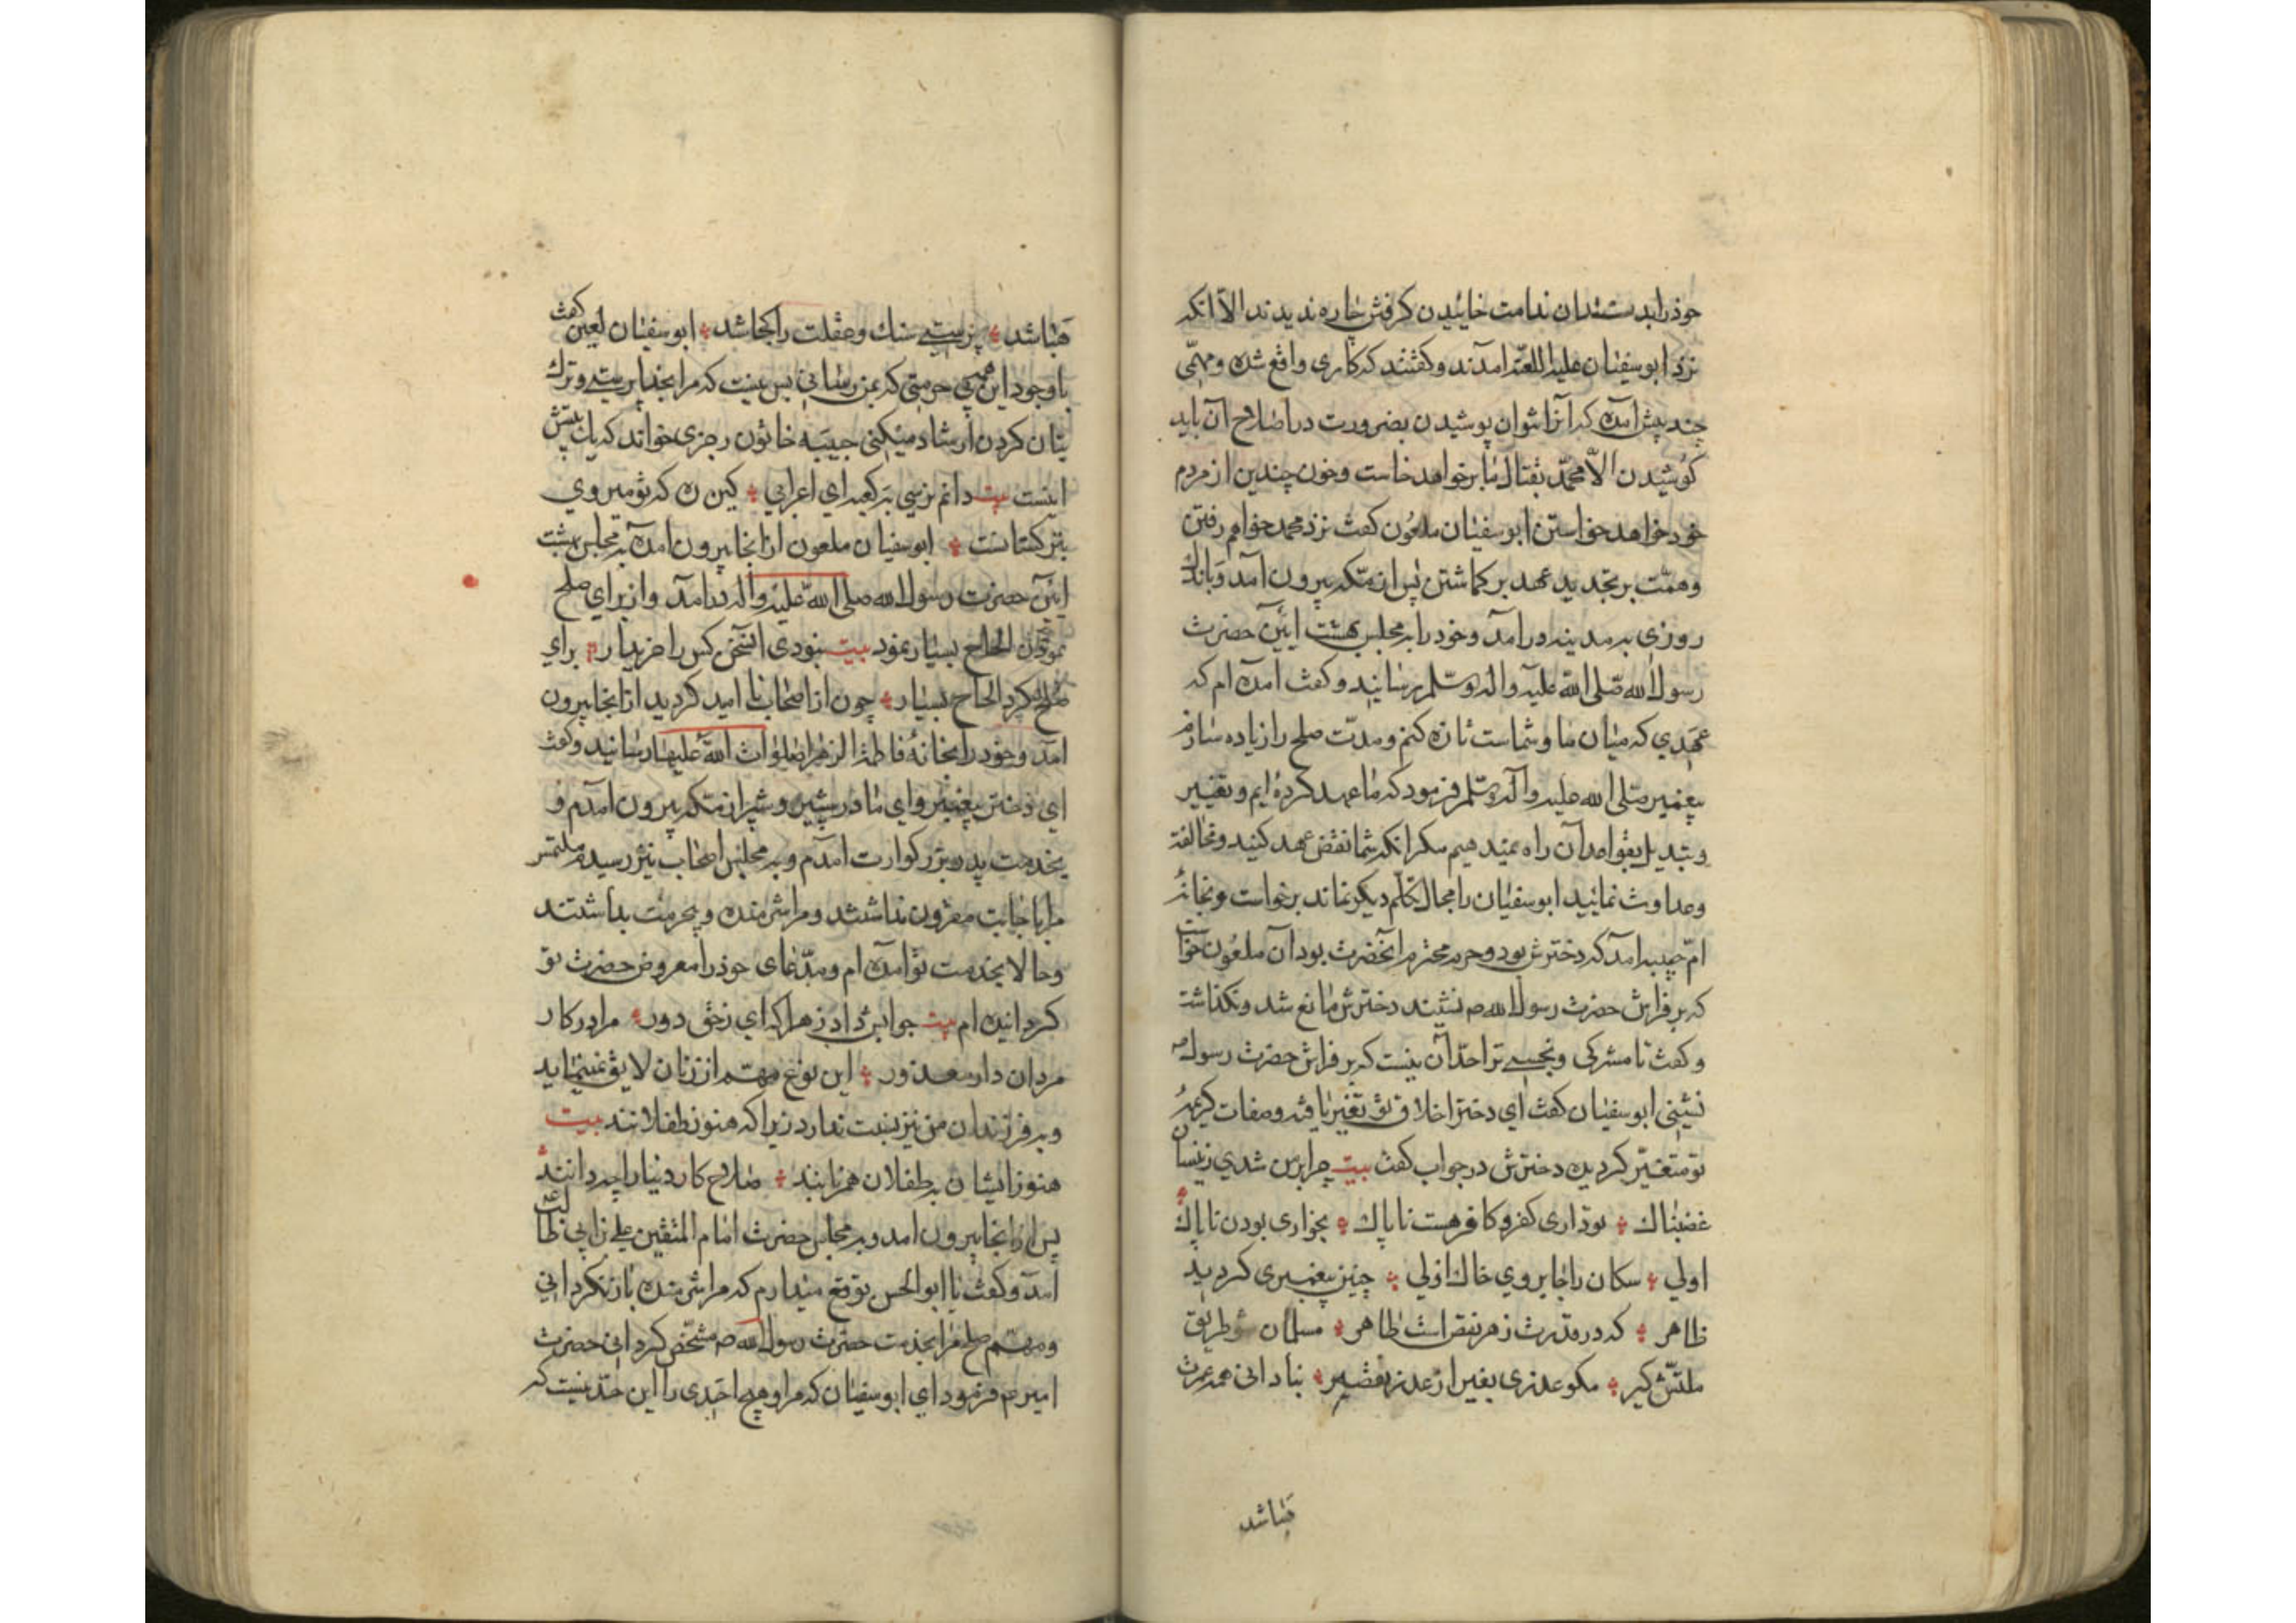 خوذ رابدست ندامت خائیدن کرفتن چاره ندیدند الا آنکه
نزد ابوسفیان علیه اللعنه امدند وکفتند که کاری واقع شده ومهمّی
چند پیش آمده که آنرا نتوان پوشیدن بضرورت دراصلاح آن باید
کوشیدن الاّ محمّد بقتال ما برخواهد خاست وخون چندین از مردم
خود خواهد خواستن ابوسفیان ملعُون کفت نزد محمد خواهم رفتن
وهمّت بر تجدید عهد بر کماشتن پس از مکه بیرون آمد وباندك
روزی به مدینه درآمد وخود را به مجلس بهشت ایین حضرت
رسول الله صلی الله علیه واله وسلم رسانید وکفت امده ام که
عهدی که میان ما وشماست تازه کنم ومدت صلح را زیاده سازم
پیغمبر صلی الله علیه وآله وسلم فرمود که ما عهد کرده ایم وتغییر
وتبدیل بقواعد آن راه نمیدهیم مکر انکه شما نقض عهد کنید ومخالفة
وعداوت نمائید ابوسفیان را مجال تکلّم دیکر نماند برخواست وبخانهٔ
امّ حبیبه امد که دخترش بود وحرم محترم انحضرت بود آن ملعُون خواست
که بر فراش حضرت رسول الله ص نشیند دخترش مانع شد ونکذاشت
وکفت تا مشرکی ونجسی ترا حدّ آن نیست که بر فراش حضرت رسول ص
نشینی ابوسفیان کفت ای دختر اخلاق تو تغییر یافته وصفات کریمهٔ
تو متغیّر کردیده دخترش درجواب کفت بیت چرا بر من شدی زینسان
غضبناك توداری کفر و کافر هست ناپاك بخواری بودن ناپاك
اولی سکان را جا بروی خاك اولی چنین پیغمبری کردید
ظاهر که در قدرت زهر نقص است طاهر مسلمان شو طریق
ملتش کیر مکو عذری بغیر از عذر تقصیر بنادانی همه عمرت
فنا شد
فنا شد پرستی سنك وعقلت را کجا شد ابوسفیان لعین کفت
باوجود این همه بی حرمتی که بمن رسانی بس نیست که مرا بخدا پرستی وترك
بتان کردن ارشاد میکنی حبیبه خاتون رجزی خواند که یك بیتش
اینست بیت دانم نرسی به کعبه ای اعرابی کین ره که تو میروی
بترکستانست ابوسفیان ملعون از انجا بیرون امده به مجلس بهشت
ایین حضرت رسول الله صلی الله علیه واله درآمد واز برای صلح
نمودن الحاح بسیار نمود بیت نبودی انسخن کس را خریدار برای
صلح کرد الحاح بسیار چون از اصحاب نا امید کردید از انجا بیرون
امد وخود را بخانهٔ فاطمة الزهرا صلوات الله علیها رسانید وکفت
ای دختر پیغمبر وای مادر شبیر وشبر از مکه بیرون آمدم و
بخدمت پدر بزرکوارت آمدم وبه مجلس اصحاب نیز رسیدم ملتمس
مرا باجابت مقرون نداشتند ومرا شرمنده وبیحرمت بداشتند
وحالا بخدمت تو آمده ام ومدّعای خوذ را معروض حضرت تو
کردانیده ام بیت جوابش داد زهرا که ای زحق دور مرا در کار
مردان دار معذور این نوع مهمّ از زنان لایق نمینماید
وبه فرزندان من نیز نسبت ندارد زیرا که هنوز طفلانند بیت
هنوز ایشان به طفلان همزبانند صلاح کار دنیا را چه دانند
پس از انجا بیرون امد وبه مجلس حضرت امام المتقین علی بن ابی طالب ع
آمد وکفت یا ابوالحسن توقع میدارم که مرا شرمنده باز نکردانی
ومهم صلح مرا بخدمت حضرت رسول الله ص مشخّص کردانی حضرت
امیر ع فرمود ای ابوسفیان که مرا وهیچ احَدی را این حدّ نیست که